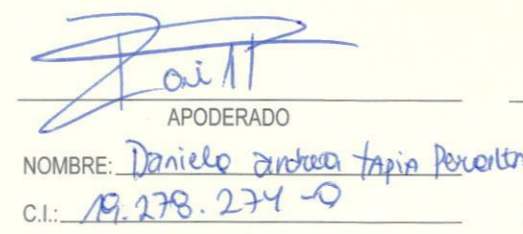 APODERADO
NOMBRE: Daniela andrea tapia Peralta
C.I.: 19.278.274-0